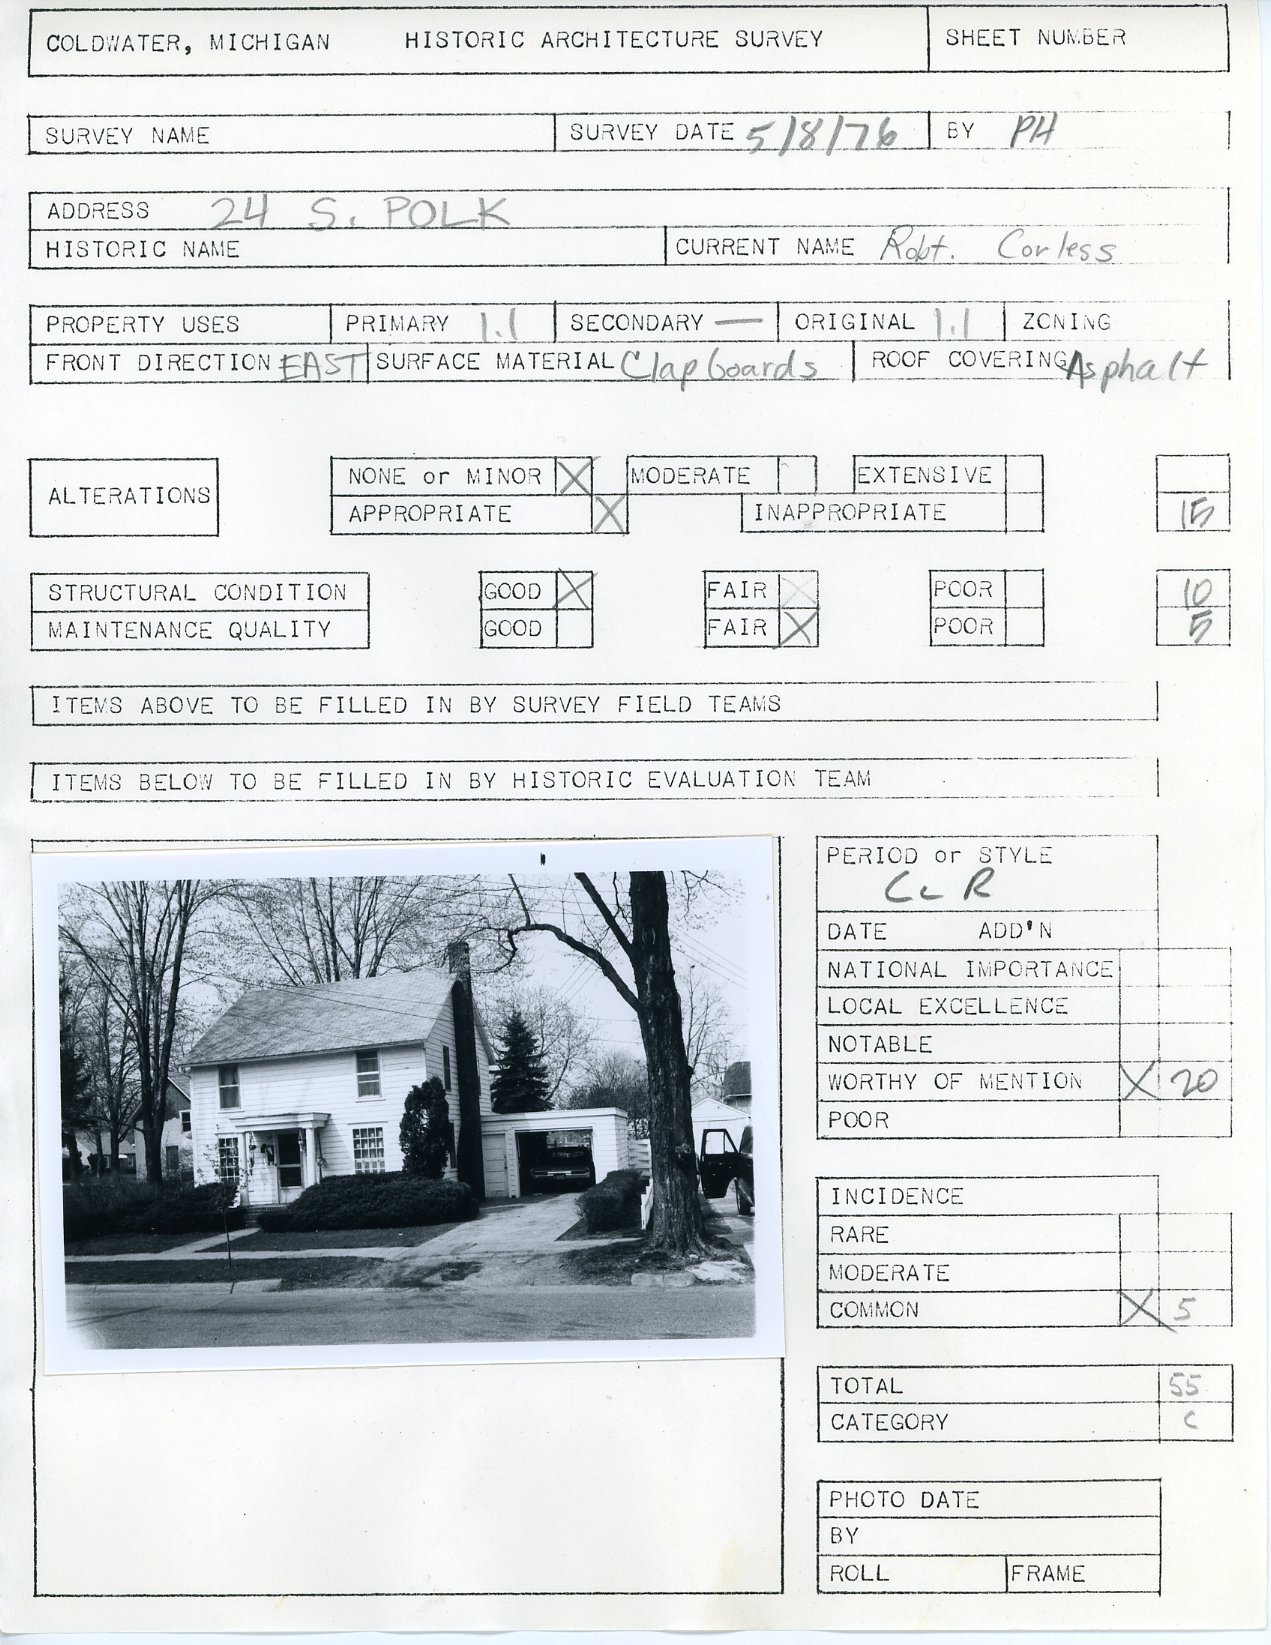 COLDWATER, MICHIGAN HISTORIC ARCHITECTURE SURVEY SHEET NUMBER
SURVEY NAME SURVEY DATE 5/8/76 BY PH
ADDRESS 24 S. POLK
HISTORIC NAME CURRENT NAME Robt. Corless
PROPERTY USES PRIMARY 1.1 SECONDARY — ORIGINAL 1.1 ZONING
FRONT DIRECTION EAST SURFACE MATERIAL Clapboards ROOF COVERING Asphalt
ALTERATIONS NONE or MINOR X MODERATE EXTENSIVE
APPROPRIATE X INAPPROPRIATE 15
STRUCTURAL CONDITION GOOD X FAIR POOR 10
MAINTENANCE QUALITY GOOD FAIR X POOR 5
ITEMS ABOVE TO BE FILLED IN BY SURVEY FIELD TEAMS
ITEMS BELOW TO BE FILLED IN BY HISTORIC EVALUATION TEAM
PERIOD or STYLE
CLR
DATE ADD'N
NATIONAL IMPORTANCE
LOCAL EXCELLENCE
NOTABLE
WORTHY OF MENTION X 20
POOR
INCIDENCE
RARE
MODERATE
COMMON X 5
TOTAL 55
CATEGORY C
PHOTO DATE
BY
ROLL FRAME